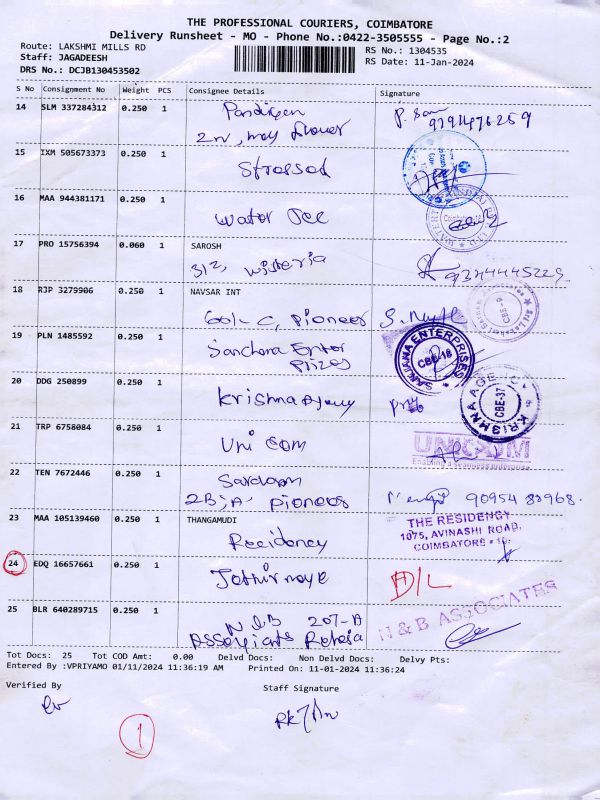 THE PROFESSIONAL COURIERS, COIMBATORE
Delivery Runsheet - MO - Phone No.:0422-3505555 - Page No.:2
Route: LAKSHMI MILLS RD
RS No.: 1304535
Staff: JAGADEESH
RS Date: 11-Jan-2024
DRS No.: DCJB130453502
S No Consignment No Weight PCS Consignee Details Signature
14 SLM 337284312 0.250 1
15 IXM 505673373 0.250 1
16 MAA 944381171 0.250 1
water Tee
17 PRO 15756394 0.060 1 SAROSH
312, wisteria 9344445229
18 RJP 3279906 0.250 1 NAVSAR INT
pioneer
CBE-9
19 PLN 1485592 0.250 1
Sanchana Enter
prizes
SANJANA ENTERPRISES
CBE-18
20 DDG 250899 0.250 1
Krishna Agency
KRISHNA AGENCY
CBE-37
21 TRP 6758084 0.250 1
Uni com
UNICOM
22 TEN 7672446 0.250 1
2B, A, pioneer 90954 88968
23 MAA 105139460 0.250 1 THANGAMUDI
Recidency
THE RESIDENCY
1075, AVINASHI ROAD,
COIMBATORE - 18.
24 EDQ 16657661 0.250 1
D/L
25 BLR 640289715 0.250 1
N&B 207-A
N & B ASSOCIATES
Tot Docs: 25 Tot COD Amt: 0.00 Delvd Docs: Non Delvd Docs: Delvy Pts:
Entered By :VPRIYAMO 01/11/2024 11:36:19 AM Printed On: 11-01-2024 11:36:24
Verified By Staff Signature
1